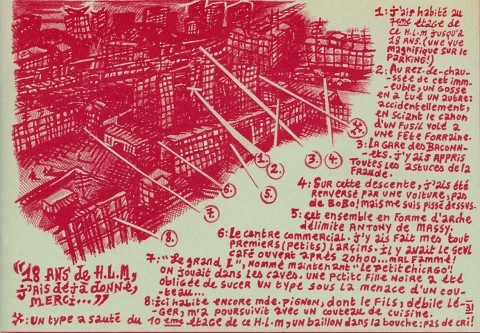 1: j'ai habité au
7ème étage de
ce H.L.M jusqu'à
18 ans. (une vue
magnifique sur le
parking!)
2: Au rez-de-chau-
ssée de cet imm-
euble, un gosse
en a tué un autre:
accidentellement,
en sciant le canon
d'un fusil volé a
une fête forraine.
3: La gare des Baconn-
ets. j'y ais appris
toutes les astuces de la
fraude.
4: Sur cette descente, j'ais été
renversé par une voiture, pas
de bobo! mais me suis pissé dessus.
5: cet ensemble en forme d'arche
délimite Antony de Massy.
6: Le centre commercial. j'y ais fait mes tout
premiers (petits) larçins. il y avait le seul
café ouvert après 20h00... mal famme!
7: "Le grand I", nommé maintenant "le petit chicago"!
on jouait dans les caves. une petite fille noire a été
obligée de sucer un type sous la menace d'un cou-
teau...
8: ici habite encore mde. Pignon, dont le fils, débile lé-
ger, m'a poursuivit avec un couteau de cuisine.
X: un type a sauté du 10ème étage de ce H.L.M, un baillon dans la bouche: pas de cri!
"18 ans de H.L.M,
j'ais déjà donné,
merci..."
1.
2.
3.
4.
X
5.
6.
7.
8.